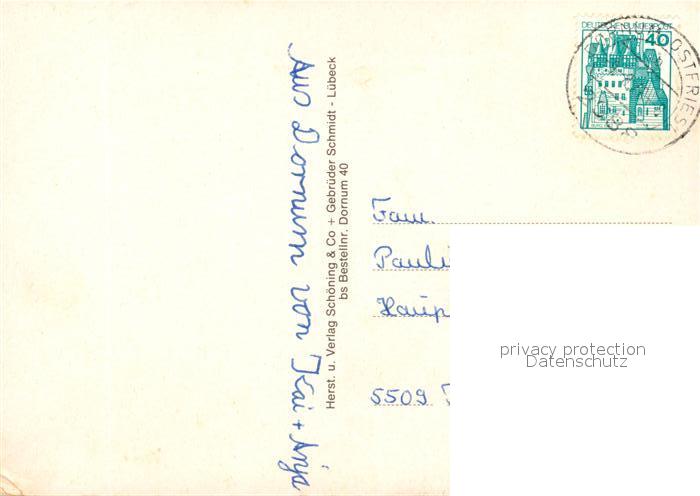 DEUTSCHE BUNDESPOST
40
OSTFRIES
Aus Dornum von Kai + Anja
Herst. u. Verlag Schöning & Co + Gebrüder Schmidt - Lübeck
bs Bestellnr. Dornum 40
Fam.
Pauli
Haup
5509
privacy protection
Datenschutz